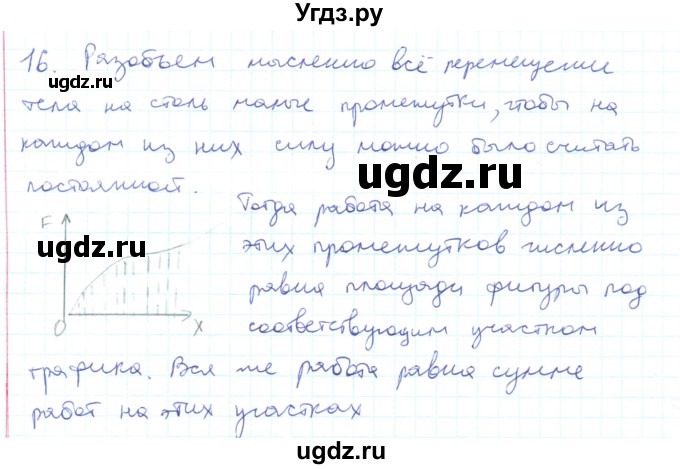 Угдз.ру
16. Разобъем мысленно всё перемещение
ugdz.ru
тела на столь малые промежутки, чтобы на
каждом из них силу можно было считать
ugdz.ru
ugdz.ru
постоянной.
Тогда работа на каждом из
F
этих промежутков численно
ugdz.ru
равна площади фигуры под
O
x
соответствующим участком
ugdz.ru
графика. Вся же работа равна сумме
работ на этих участках
ugdz.ru
ugdz.ru